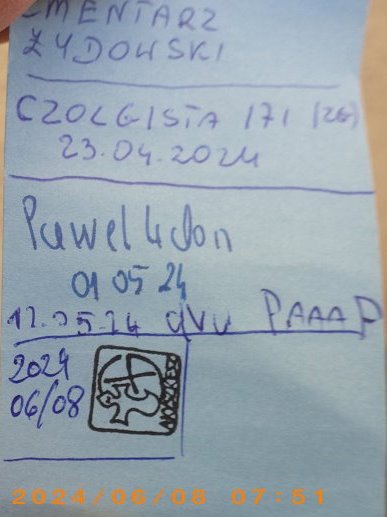 CMENTARZ
ŻYDOWSKI
CZOLGISTA 171 (ZG)
23.04.2024
Pawel4don
01 05 24
12.05.24 PAAAP
2024
06/08
2024/06/08 07:51